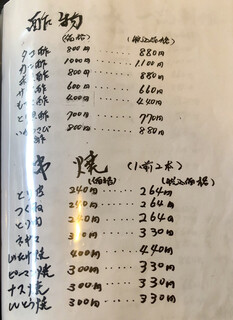 酢物
(価格) (税込価格)
タコ酢 800円 ‥‥ 880円
カニ酢 1000円 ‥‥ 1,100円
酢 800円 ‥‥ 880円
酢 600円 ‥‥ 660円
酢 400円 ‥‥ 440円
酢 700円 ‥‥ 770円
800円 ‥‥ 880円
串焼 (1人前2本)
(価格) (税込価格)
とり 240円 ‥‥ 264円
つくね 240円 ‥‥ 264円
とり 240円 ‥‥ 264円
ネギマ 300円 ‥‥ 330円
しいたけ焼 400円 ‥‥ 440円
ピーマン焼 300円 ‥‥ 330円
ナス焼 300円 ‥‥ 330円
ししとう焼 300円 ‥‥ 330円